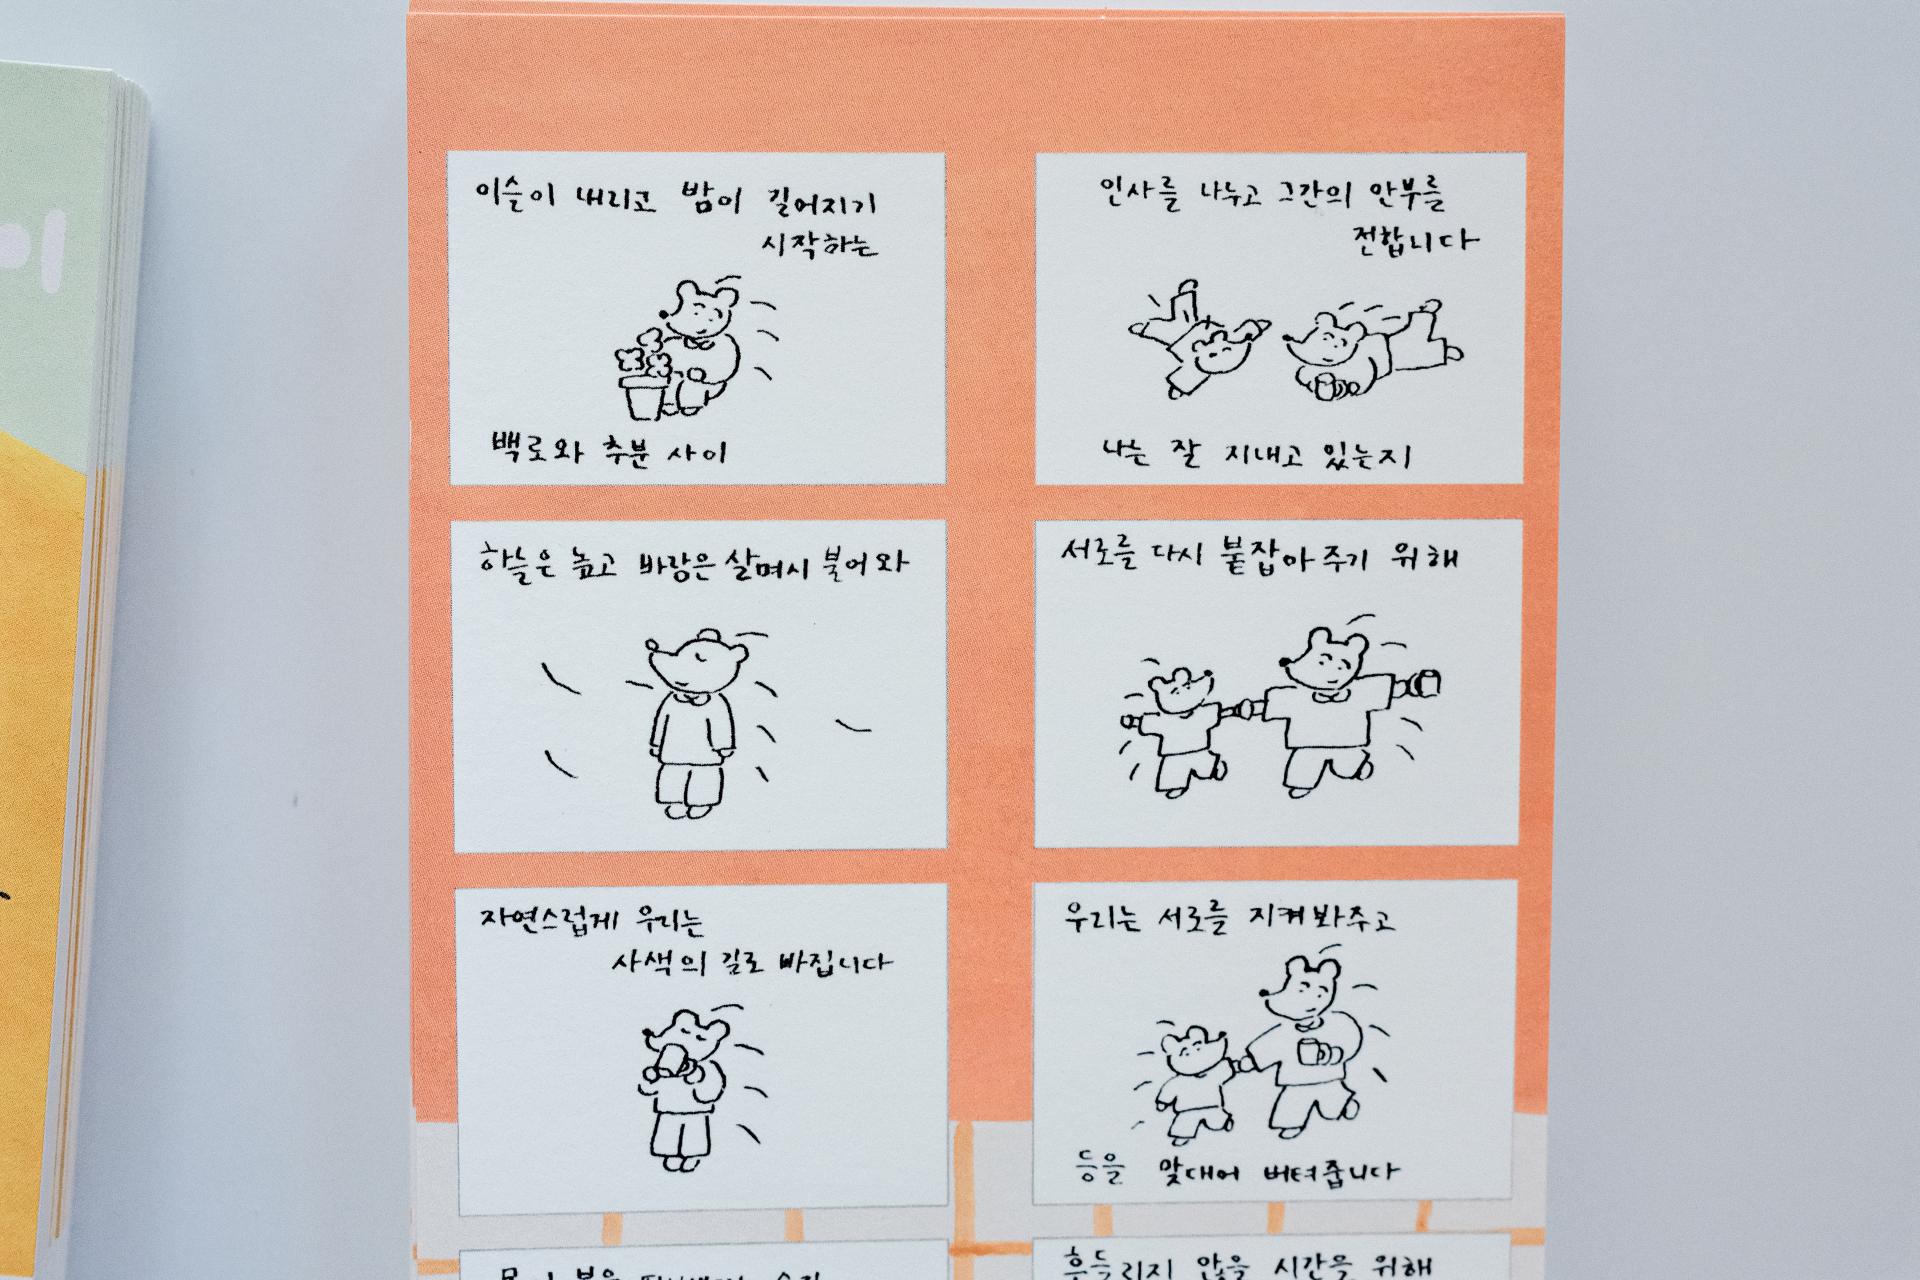 이슬이 내리고 밤이 길어지기
시작하는
백로와 추분 사이
하늘은 높고 바람은 살며시 불어와
자연스럽게 우리는
사색의 길로 빠집니다
인사를 나누고 그간의 안부를
전합니다
나는 잘 지내고 있는지
서로를 다시 붙잡아 주기 위해
우리는 서로를 지켜봐주고
등을 맞대어 버텨줍니다
흔들리지 않을 시간을 위해